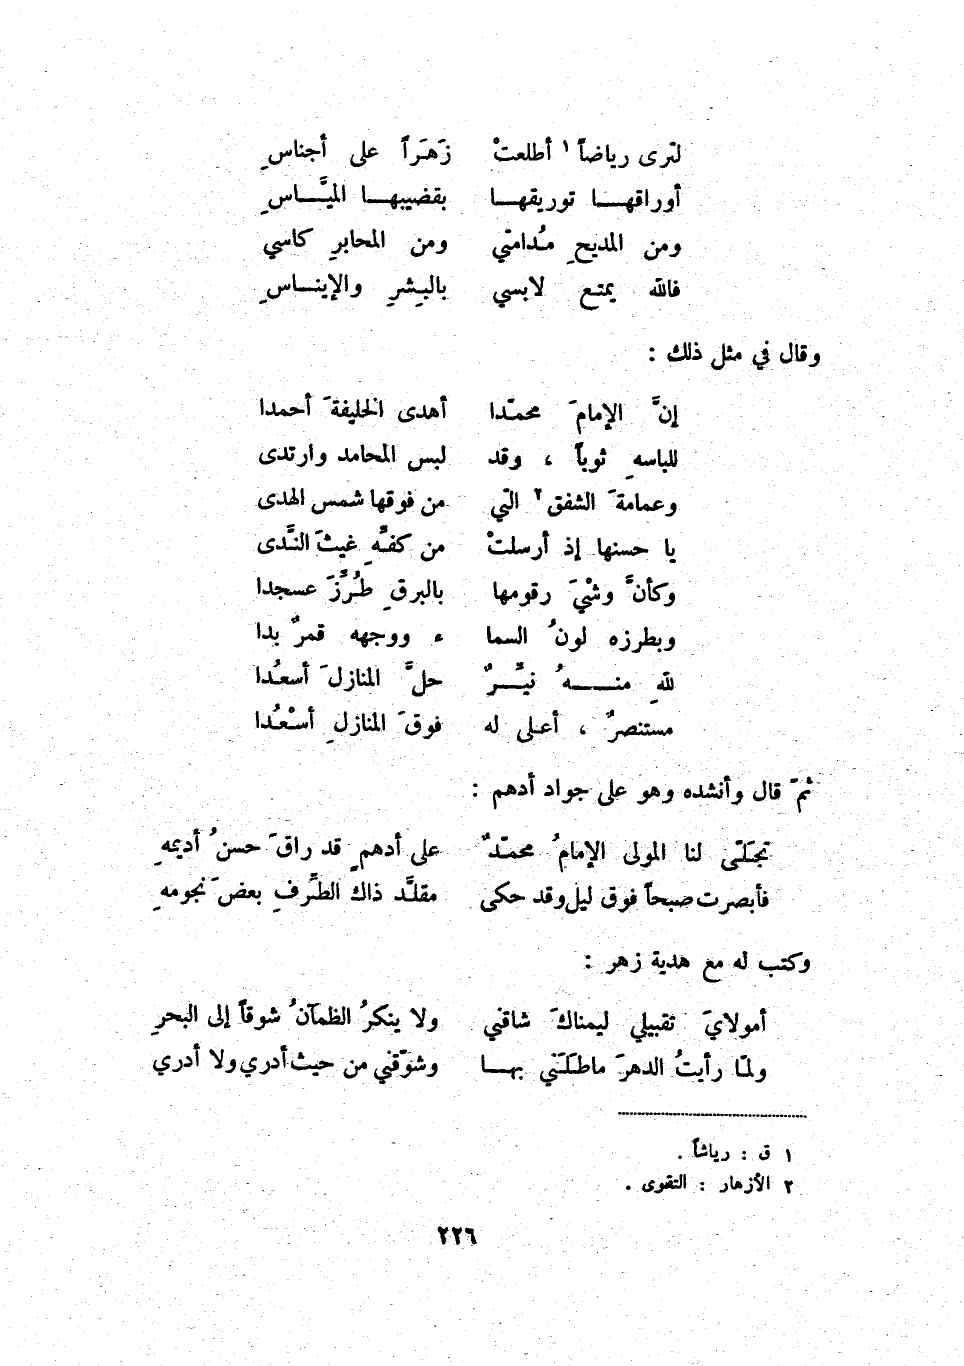 لترى رياضاً ١ أطلعتْ زَهَراً على أجناسِ
أوراقهـا توريقهـا بقضيبهـا الميَّـاسِ
ومن المديحِ مُدامتي ومن المحابرِ كاسي
فالله يمتع لابسي بالبِشرِ والإينـاسِ
وقال في مثل ذلك :
إنَّ الإمامَ محمّدا أهدى الخليفةَ أحمدا
للباسهِ ثوباً ، وقد لبس المحامد وارتدى
وعمامةَ الشفق ٢ التي من فوقها شمس الهدى
يا حسنها إذ أرسلتْ من كفّهِ غيثَ النَّدى
وكأنَّ وشْيَ رقومها بالبرقِ طُرِّزَ عسجدا
وبطرزه لونُ السما ء ووجهه قمرٌ بدا
للهِ منـهُ نيِّـرٌ حلَّ المنازلَ أسعُدا
مستنصرٌ ، أعلى له فوقَ المنازلِ أسْعُدا
ثمّ قال وأنشده وهو على جواد أدهم :
تجَلّى لنا المولى الإمامُ محمّدٌ على أدهمٍ قد راقَ حسنُ أديمهِ
فأبصرت صبحاً فوق ليل وقد حكى مقلَّد ذاك الطِّرفِ بعضَ نجومهِ
وكتب له مع هدية زهر :
أمولايَ تقبيلي ليمناكَ شاقني ولا ينكرُ الظمآنُ شوقاً إلى البحرِ
ولمّا رأيتُ الدهرَ ماطَلَني بهـا وشوّقني من حيث أدري ولا أدري
١ ق : رياشاً .
٢ الأزهار : التقوى .
٢٢٦